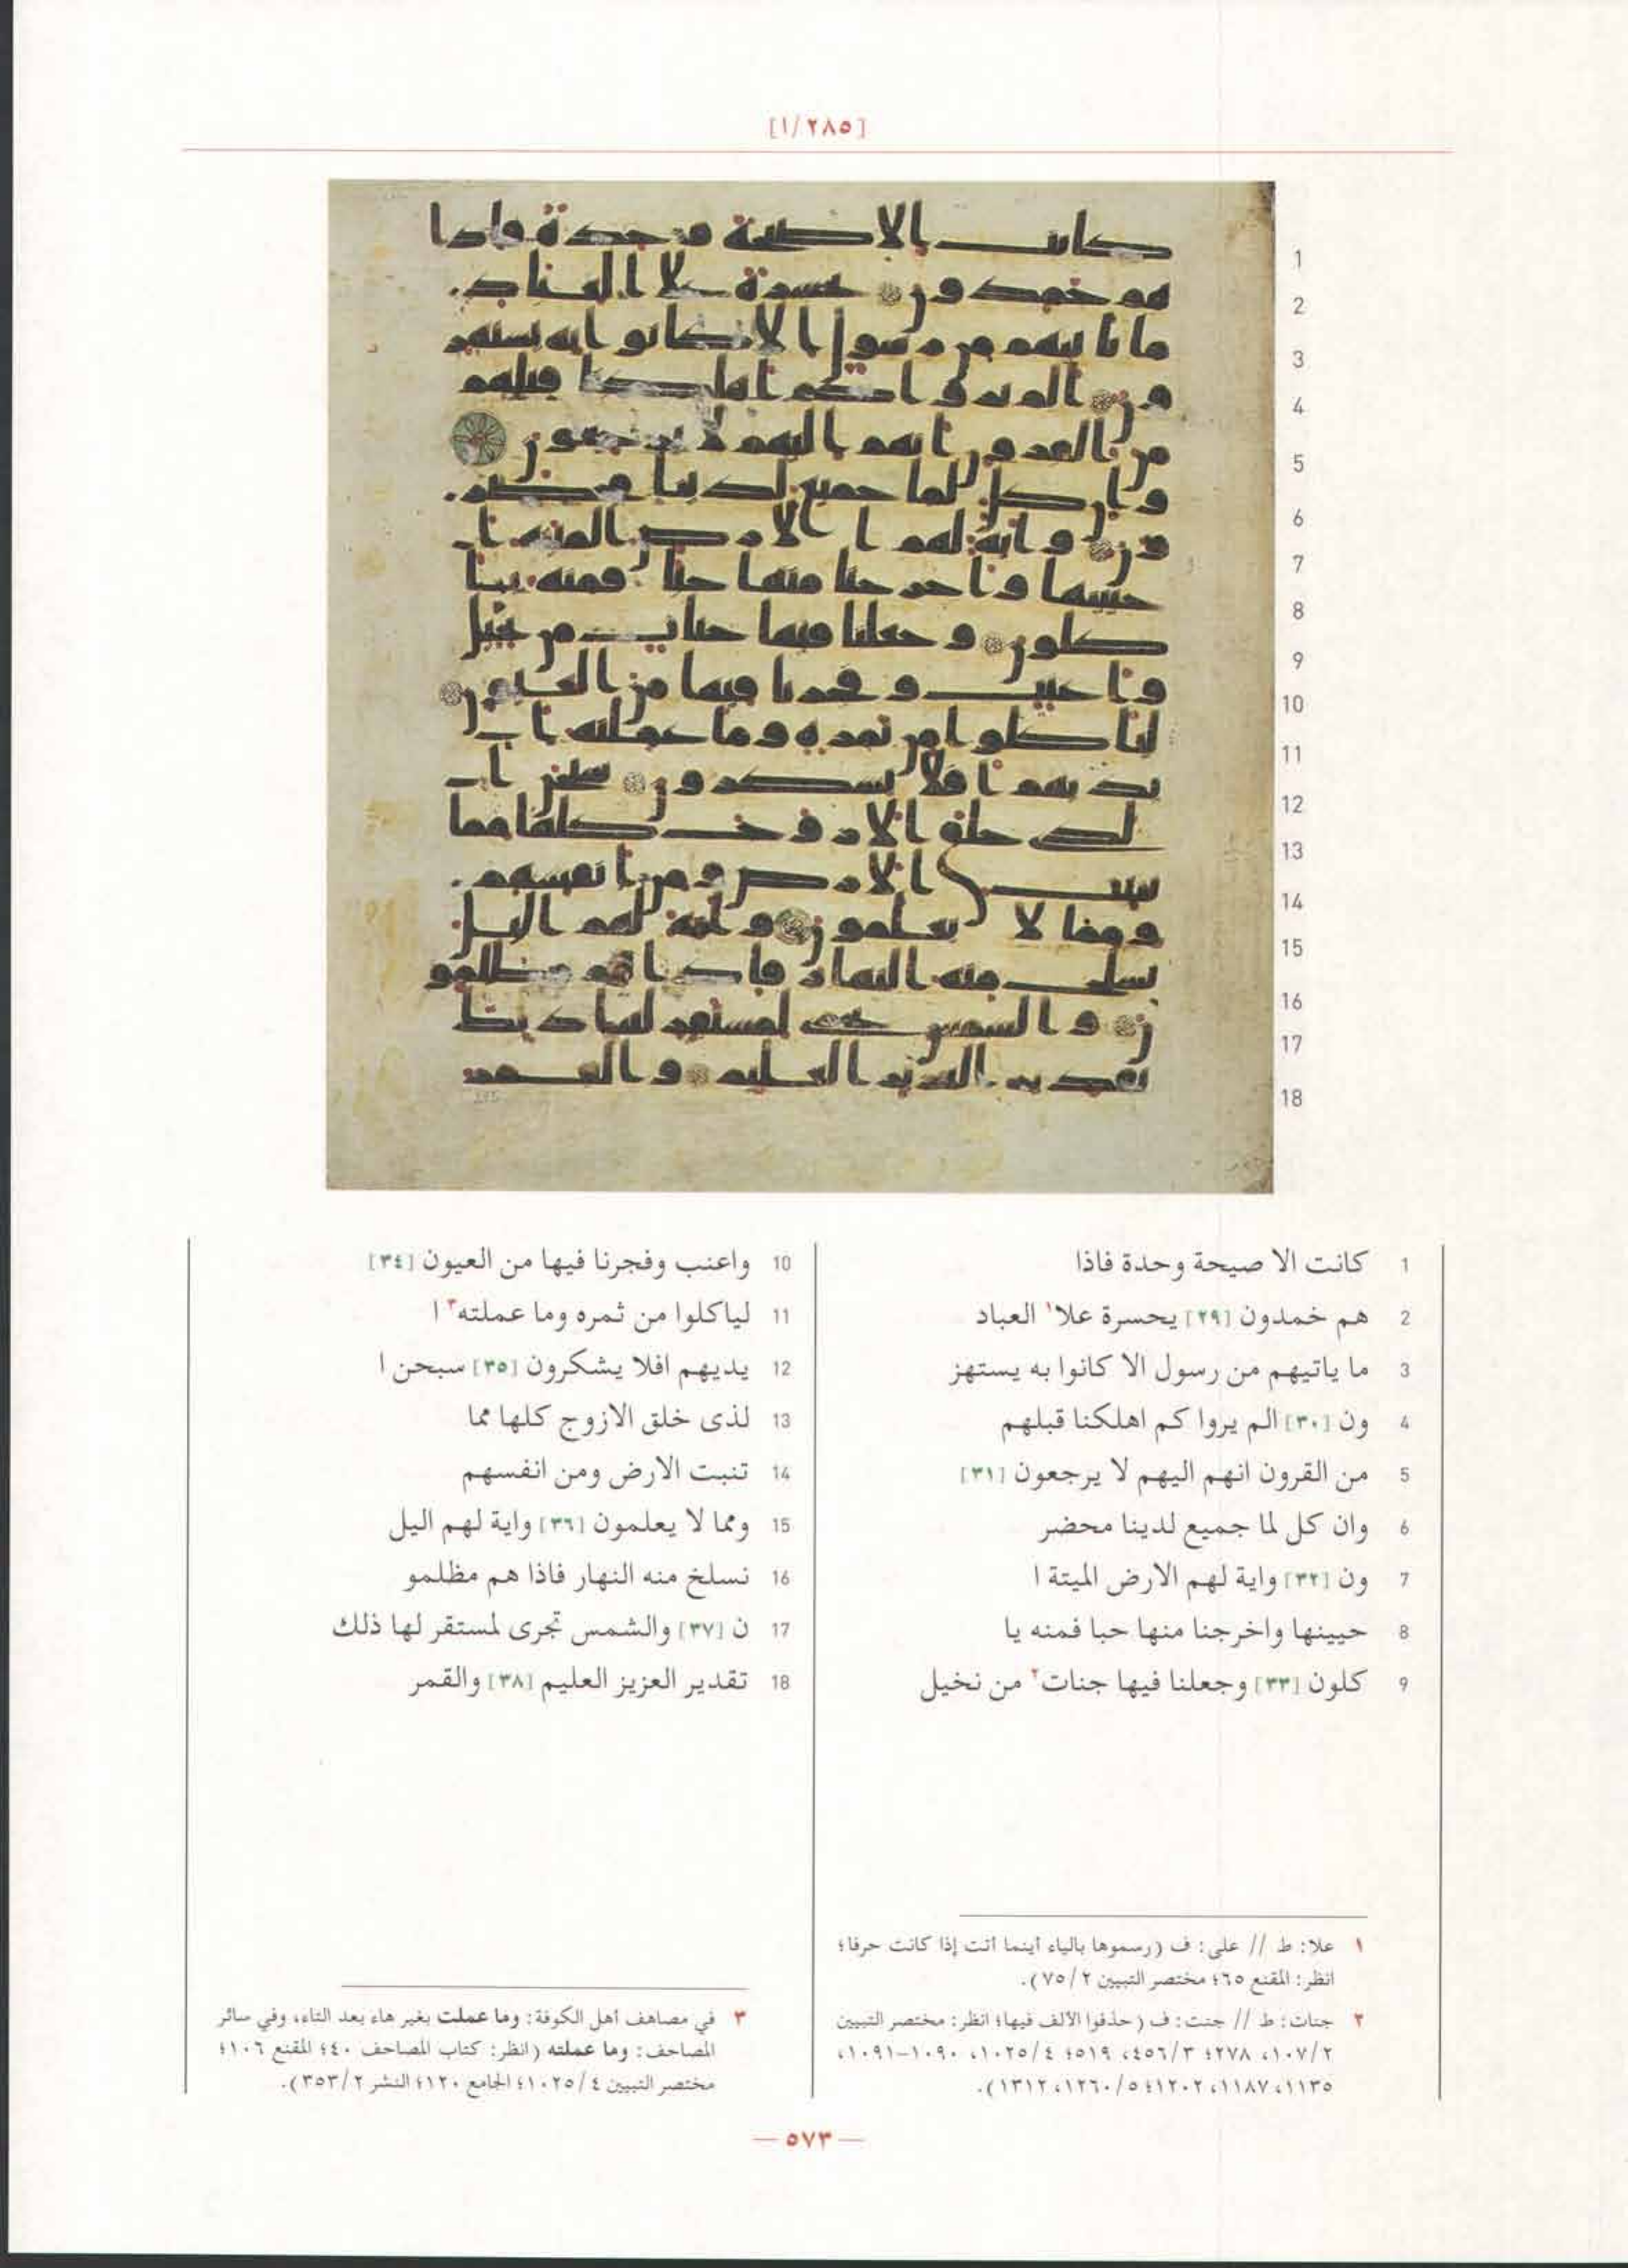 [١/٢٨٥]
1 كانت الا صيحة وحدة فاذا
2 هم خمدون [٢٩] يحسرة علا١ العباد
3 ما ياتيهم من رسول الا كانوا به يستهز
4 ون [٣٠] الم يروا كم اهلكنا قبلهم
5 من القرون انهم اليهم لا يرجعون [٣١]
6 وان كل لما جميع لدينا محضر
7 ون [٣٢] واية لهم الارض الميتة ا
8 حيينها واخرجنا منها حبا فمنه يا
9 كلون [٣٣] وجعلنا فيها جنات٢ من نخيل
10 واعنب وفجرنا فيها من العيون [٣٤]
11 لياكلوا من ثمره وما عملته٣ ا
12 يديهم افلا يشكرون [٣٥] سبحن ا
13 لذى خلق الازوج كلها مما
14 تنبت الارض ومن انفسهم
15 ومما لا يعلمون [٣٦] واية لهم اليل
16 نسلخ منه النهار فاذا هم مظلمو
17 ن [٣٧] والشمس تجرى لمستقر لها ذلك
18 تقدير العزيز العليم [٣٨] والقمر
١ علا: ط // على: ف (رسموها بالياء أينما أتت إذا كانت حرفا؛
انظر: المقنع ٦٥؛ مختصر التبيين ٧٥/٢).
٢ جنات: ط // جنت: ف (حذفوا الألف فيها؛ انظر: مختصر التبيين
١٠٧/٢، ٢٧٨؛ ٤٥٦/٣، ٥١٩؛ ١٠٢٥/٤، ١٠٩٠-١٠٩١،
١١٣٥، ١١٨٧، ١٢٠٢؛ ١٢٦٠/٥، ١٣١٢).
٣ في مصاحف أهل الكوفة: وما عملت بغير هاء بعد التاء، وفي سائر
المصاحف: وما عملته (انظر: كتاب المصاحف ٤٠؛ المقنع ١٠٦؛
مختصر التبيين ١٠٢٥/٤؛ الجامع ١٢٠؛ النشر ٣٥٣/٢).
— ٥٧٣ —